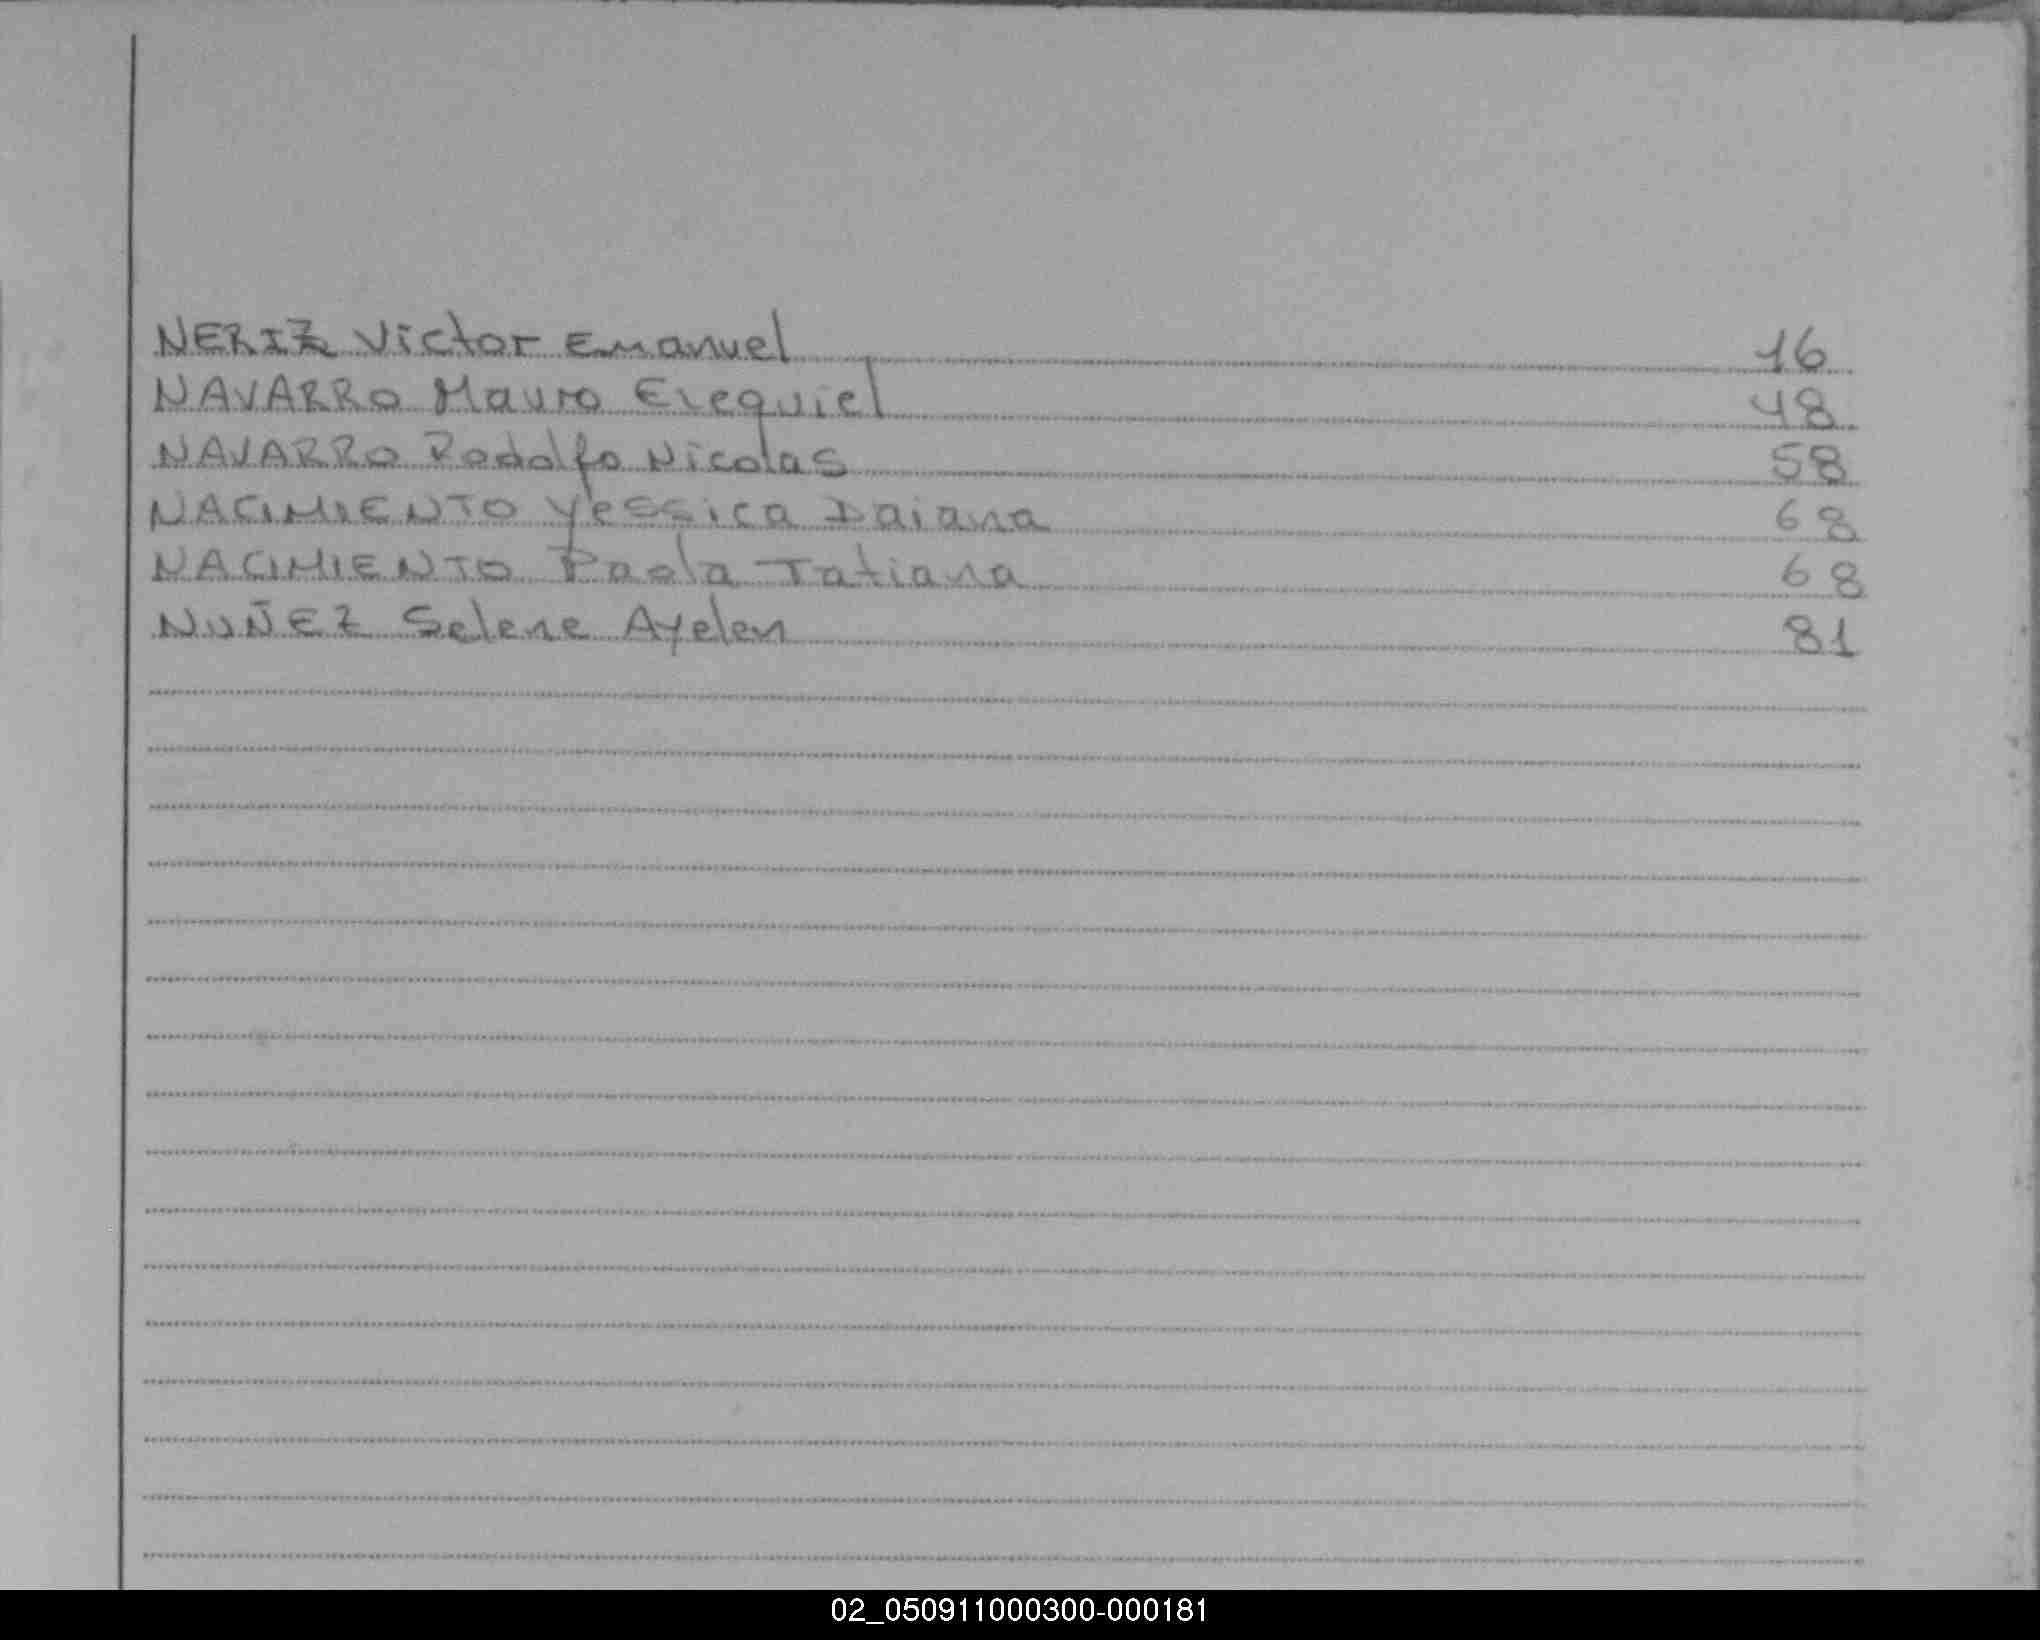 NERIZ Victor Emanuel 16
NAVARRO Mauro Ezequiel 48
NAVARRO Rodolfo Nicolas 58
NACIMIENTO Yessica Daiana 68
NACIMIENTO Paola Tatiana 68
NUÑEZ Selene Ayelen 81
02_050911000300-000181